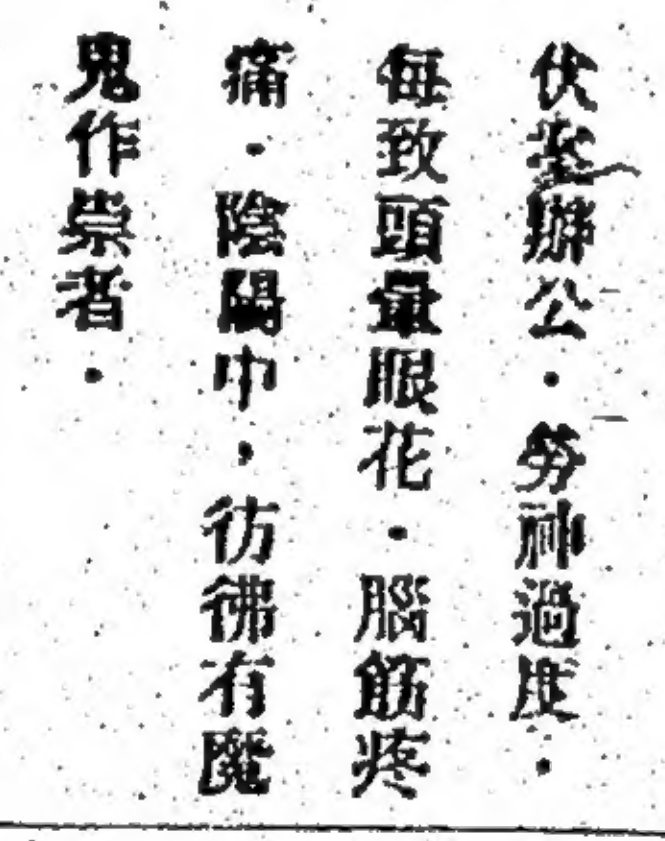 伏案辦公．勞神過度．
每致頭暈眼花．腦筋疼
痛．陰陽巾，彷彿有魔
鬼作祟者．